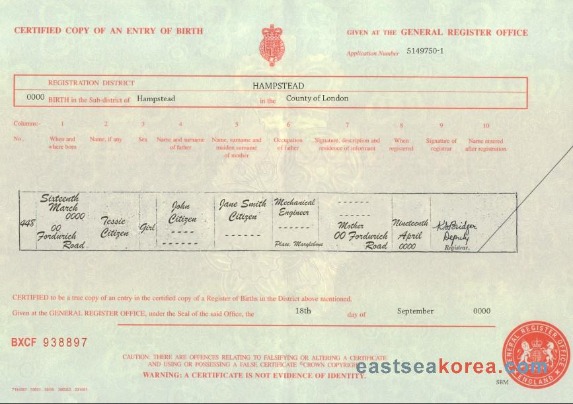 CERTIFIED COPY OF AN ENTRY OF BIRTH
GIVEN AT THE GENERAL REGISTER OFFICE
Application Number 5149750-1
REGISTRATION DISTRICT HAMPSTEAD
0000 BIRTH in the Sub-district of Hampstead in the County of London
Columns:- 1 2 3 4 5 6 7 8 9 10
No. When and where born Name, if any Sex Name and surname of father Name, surname and maiden surname of mother Occupation of father Signature, description and residence of informant When registered Signature of registrar Name entered after registration
448 Sixteenth March 0000 00 Fordwich Road Tessie Citizen Girl John Citizen ---- ------ Jane Smith Citizen ------ Mechanical Engineer ------ Place. Marylebone ------ ------ Mother 00 Fordwich Road Nineteenth April 0000 Deputy Registrar.
CERTIFIED to be a true copy of an entry in the certified copy of a Register of Births in the District above mentioned.
Given at the GENERAL REGISTER OFFICE, under the Seal of the said Office, the 18th day of September 0000
BXCF 938897
CAUTION: THERE ARE OFFENCES RELATING TO FALSIFYING OR ALTERING A CERTIFICATE
AND USING OR POSSESSING A FALSE CERTIFICATE ©CROWN COPYRIGHT
WARNING: A CERTIFICATE IS NOT EVIDENCE OF IDENTITY.
eastseakorea.com
GENERAL REGISTER OFFICE
ENGLAND